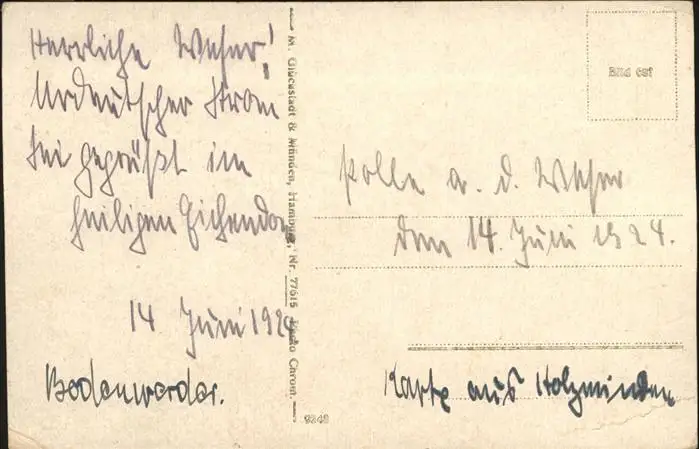 Herrliche Weser!
Urdeutscher Strom
sei gegrüßt im
heiligen Eichendom
14 Juni 192
Bodenwerder.
M. Glückstadt & Münden, Hamburg, Nr. 77615 Photo Chrom.
9248
Bild 68f
Polle a. d. Weser
den 14. Juni 1924.
Karte aus Holzminden